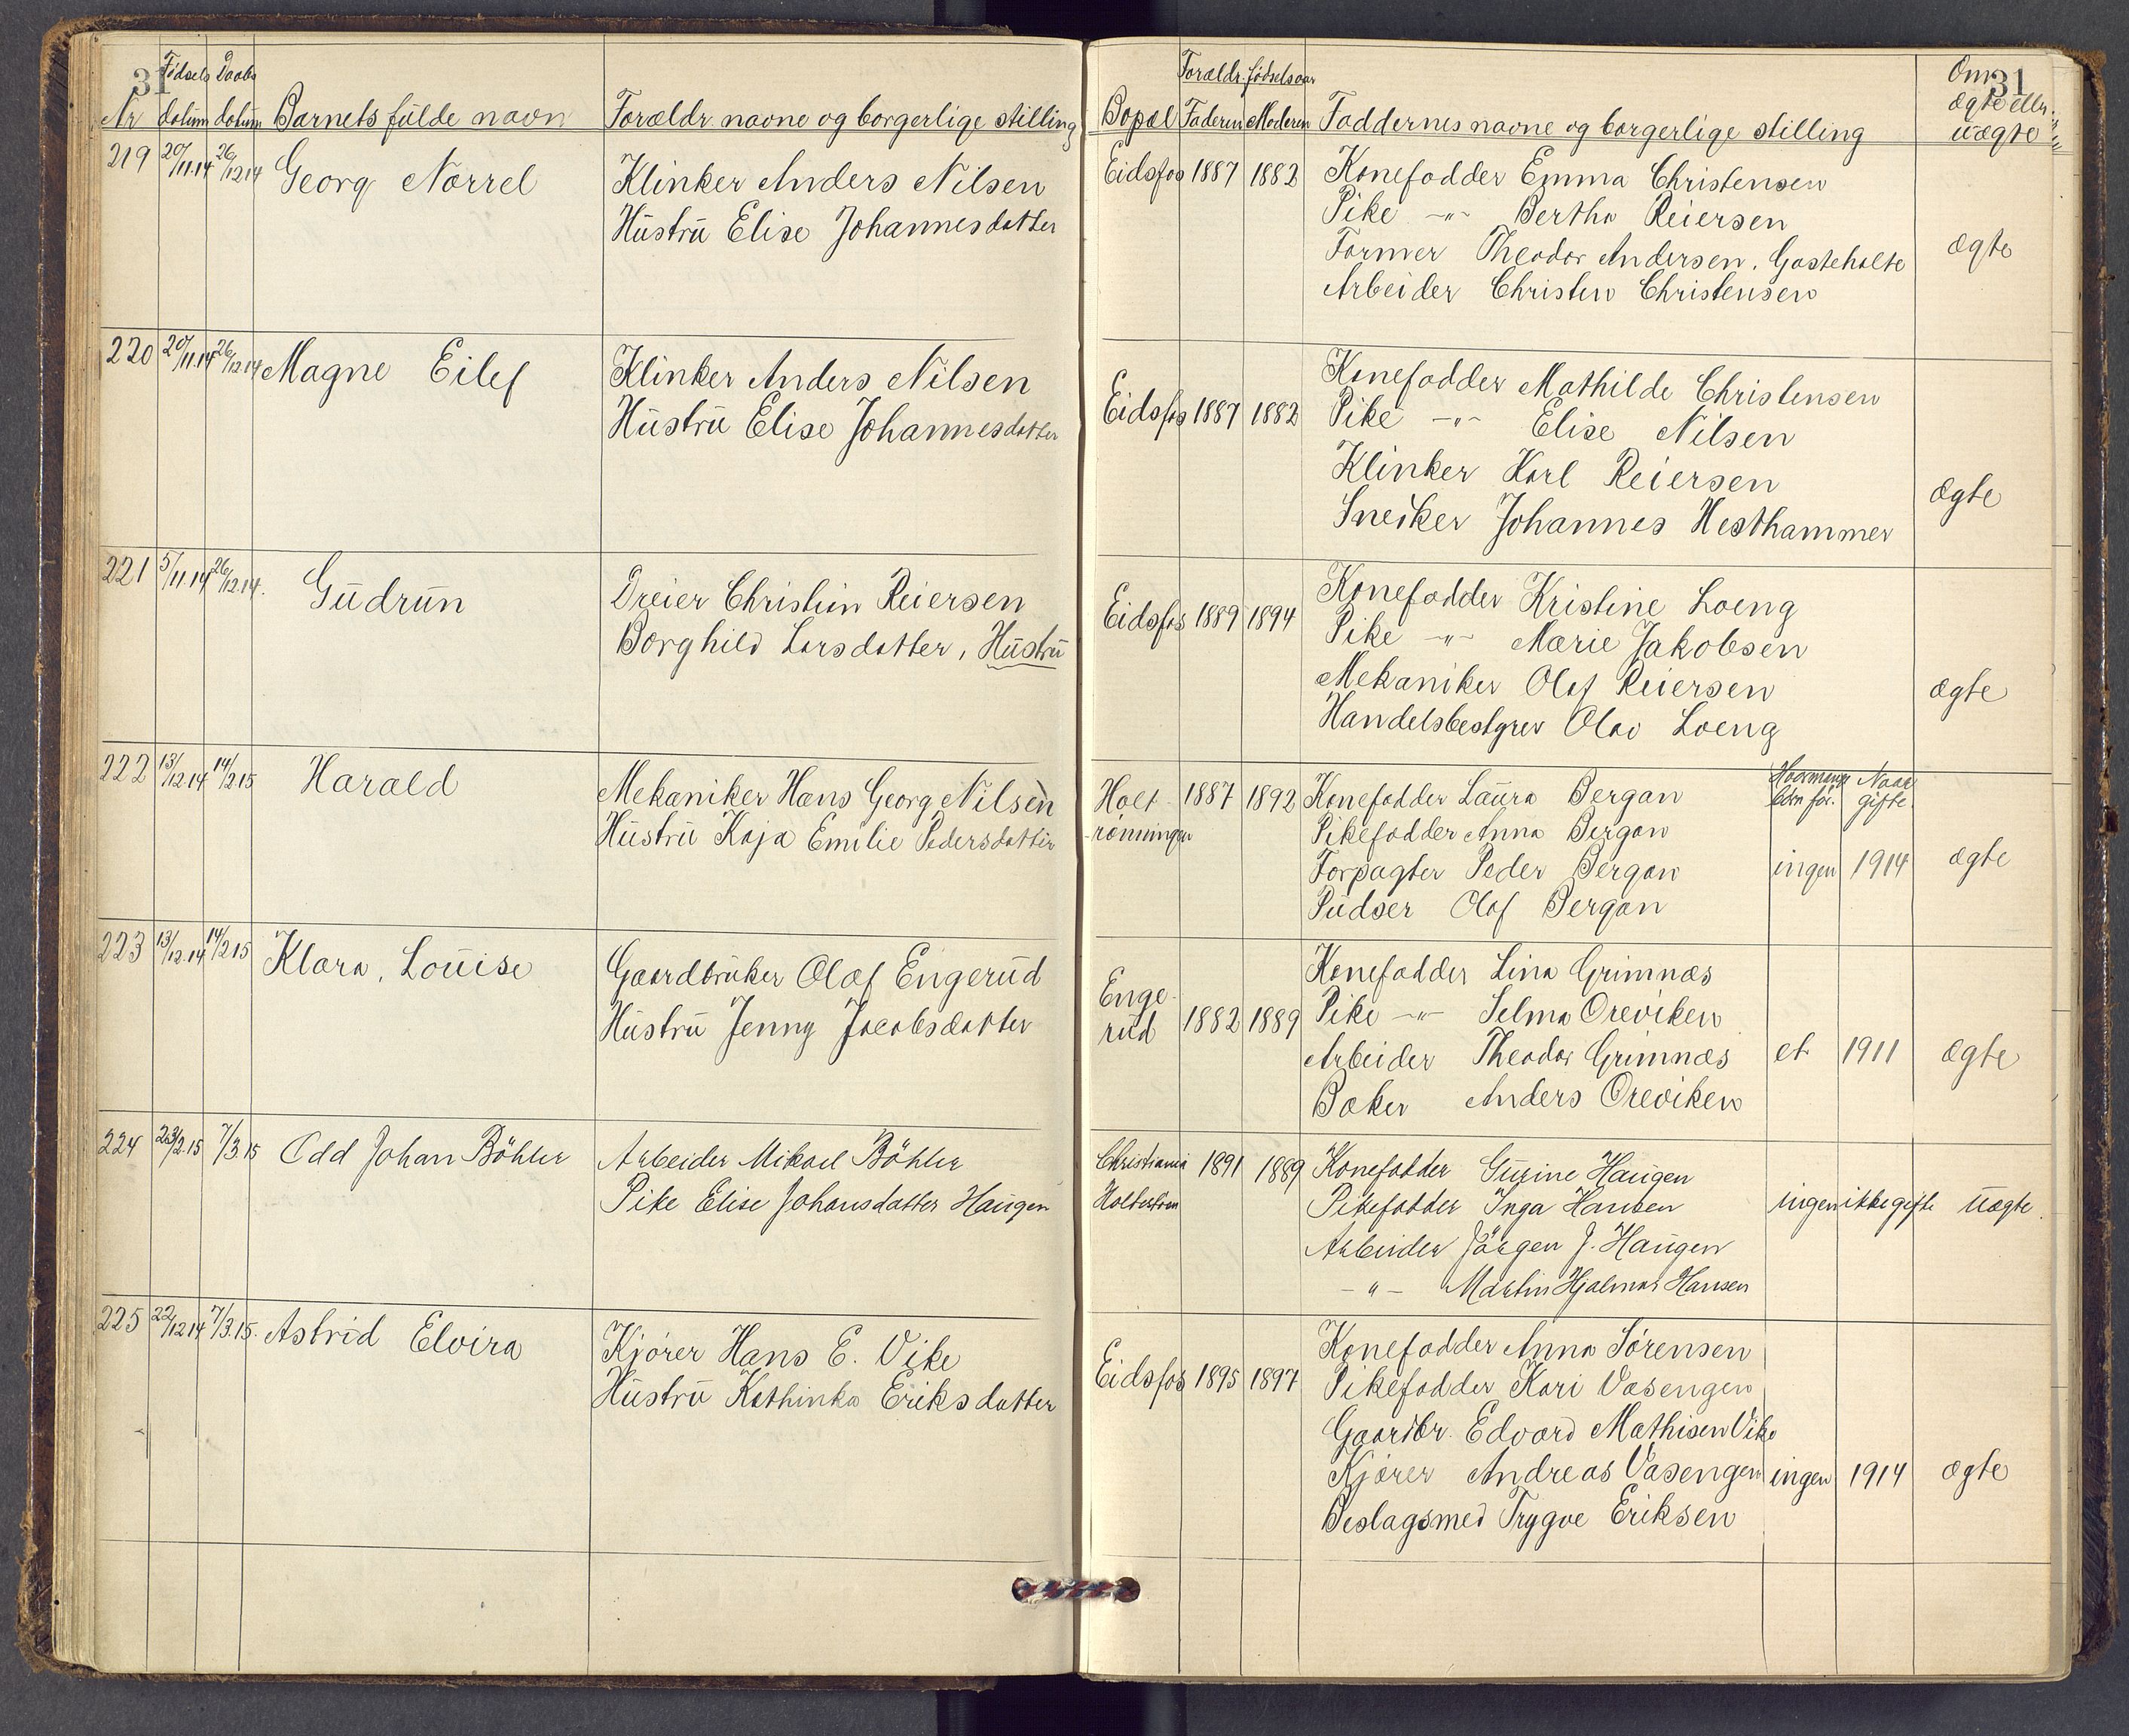 31
Fødsels Daabs
Nr datum datum Barnets fulde navn Forældr navne og borgerlige stilling
219 20/11.14 26/12 14 Georg Norrel Klinker Anders Nilsen
Hustru Elise Johannesdatter
220 20/11.14 26/12.14 Magne Eilef Klinker Anders Nilsen
Hustru Elise Johannesdatter
221 5/11.14 26/12.14. Gudrun Dreier Christian Reiersen
Borghild Larsdatter, Hustru
222 13/12.14 14/2 15 Harald Mekaniker Hans Georg Nilsen
Hustru Kaja Emilie Pedersdatter
223 13/12.14 14/2 15 Klara, Louise Gaardbruker Olaf Engerud
Hustru Jenny Jacobsdatter
224 23/2.15 7/3 15 Odd Johan Böhler Arbeider Mikael Böhler
Pike Elise Johansdatter Haugen
225 22/12 14 7/3.15. Astrid Elvira Kjører Hans E. Vike
Hustru Kathinka Eriksdatter
31
Forældr. fødselsaar Om
Bopæl Faderen Moderen Faddernes navne og borgerlige stilling ægte eller
uægte
Eidsfos 1887 1882 Konefadder Emma Christensen
Pike -"- Bertha Reiersen
Former Theodor Andersen, Gasteholte ægte
Arbeider Christen Christensen
Konefadder Mathilde Christensen
Eidsfos 1887 1882 Pike -"- Elise Nilsen
Klinker Karl Reiersen
Snedker Johannes Hesthammer ægte
Konefadder Kristine Loeng
Eidsfos 1889 1894 Pike -"- Marie Jakobsen
Mekaniker Olaf Reiersen ægte
Handelsbestyrer Olav Loeng
Hvormange Naar
børn før. gifte.
Holt- 1887 1892 Konefadder Laura Bergan
rönningen Pikefadder Anna Bergan
Forpagter Peder Bergan ingen 1914 ægte
Pudser Olaf Bergan
Konefadder Lina Grimnæs
Enge-
rud 1882 1889 Pike -"- Selma Oreviken
Arbeider Theodor Grimnæs et 1911 ægte
Baker Anders Oreviken
Christiania 1891 1889 Konefadder Gurine Haugen
Pikefadder Inga Hansen ingen ikke gifte uægte.
Arbeider Jörgen J. Haugen
-"- Martin Hjalmar Hansen
Konefadder Anna Sørensen
Eidsfos 1895 1897 Pikefadder Kari Vasengen
Gaardbr. Edvard Mathisen Vike
Kjører Andreas Vasengen ingen 1914 ægte
Beslagsmed Trygve Eriksen